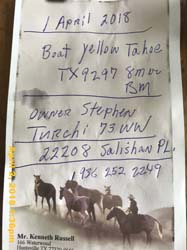 1 April 2018
Boat Yellow Tahoe
TX9297 8mw
BM
Owner Stephen
Turchi 73 WW
22208 Salishan PL.
936 252 2249
Mr. Kenneth Russell
166 Waterwood
Huntsville TX